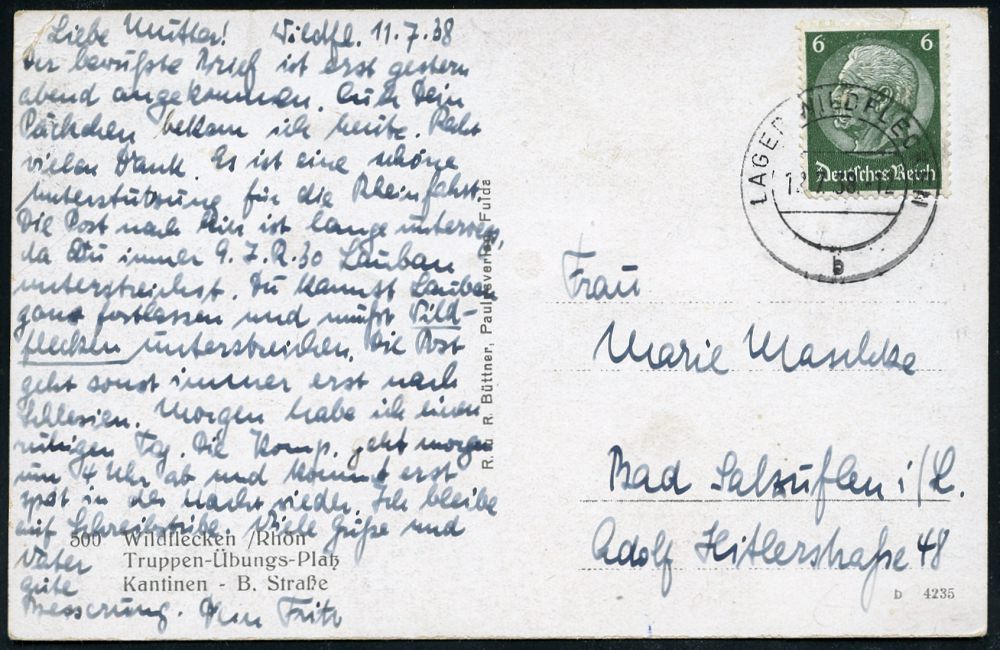 Liebe Mutter! Wildfl. 11.7.38
Der bewußte Brief ist erst gestern
abend angekommen. Auch Dein
Päckchen bekam ich heute. Recht
vielen Dank. Es ist eine schöne
Unterstützung für die Rheinfahrt.
Die Post nach hier ist lange unterwegs,
da Du immer 9. J.R.30 Lauban
unterstreichst. Du kannst Lauban
ganz fortlassen und mußt Wild-
flecken unterstreichen. Die Post
geht sonst immer erst nach
Schlesien. Morgen habe ich einen
ruhigen Tag. Die Komp. geht morgen
um 4 Uhr ab und kommt erst
spät in der Nacht wieder. Ich bleibe
auf Schreibstube. Viele Grüße und
Vater
gute
Besserung. Dein Fritz
500 Wildflecken /Rhön
Truppen-Übungs-Platz
Kantinen - B. Straße
R. u. R. Büttner, Paulusverlag, Fulda
6 6
Deutsches Reich
LAGER WILDFLECKEN
b
Frau
Marie Maschke
Bad Salzuflen i/L.
Adolf Hitlerstraße 48
D 4235